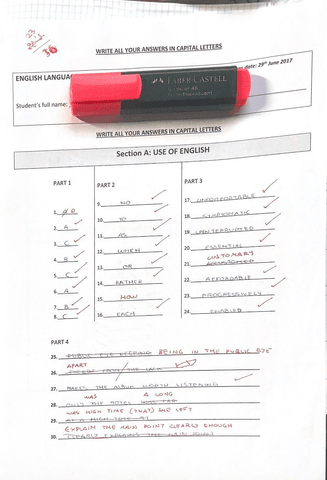 23
36
WRITE ALL YOUR ANSWERS IN CAPITAL LETTERS
date: 29th June 2017
ENGLISH LANGUAG
FABER-CASTELL
Student's full name:
WRITE ALL YOUR ANSWERS IN CAPITAL LETTERS
Section A: USE OF ENGLISH
PART 1
1. B
2. A
3. C
4. B
5. C
6. A
7. B
8. C
PART 2
9. NO
10. TO
11. AS
12. WHEN
13. OR
14. RATHER
15. HOW
16. EACH
PART 3
17. UNCOMFORTABLE
18. SYMPTOMATIC
19. UNINTERRUPTED
20. ESSENTIAL
CUSTOMARY
21.
22. AFFORDABLE
23. PROGRESSIVELY
24. ENABLED
PART 4
25. BEING IN THE PUBLIC EYE
APART
26. FROM THE LACK
27. MAKES THE ALBUM WORTH LISTENING
WAS A LONG
28. ONLY THE HOTEL WAS FAR
WAS HIGH TIME (THAT) SHE LEFT
29.
EXPLAIN THE MAIN POINT CLEARLY ENOUGH
30. CLEARLY EXPLAINS THE MAIN POINT